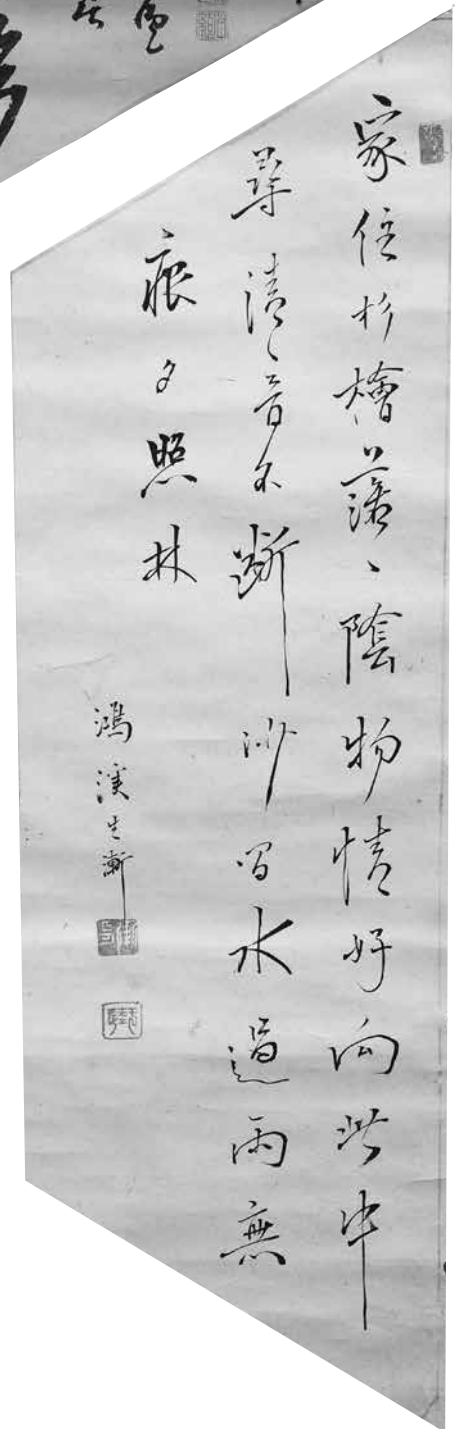 家住杉檜落〻陰物情好向此中
尋清音不斷沙間水過雨無
痕夕照林
鴻溪生漸